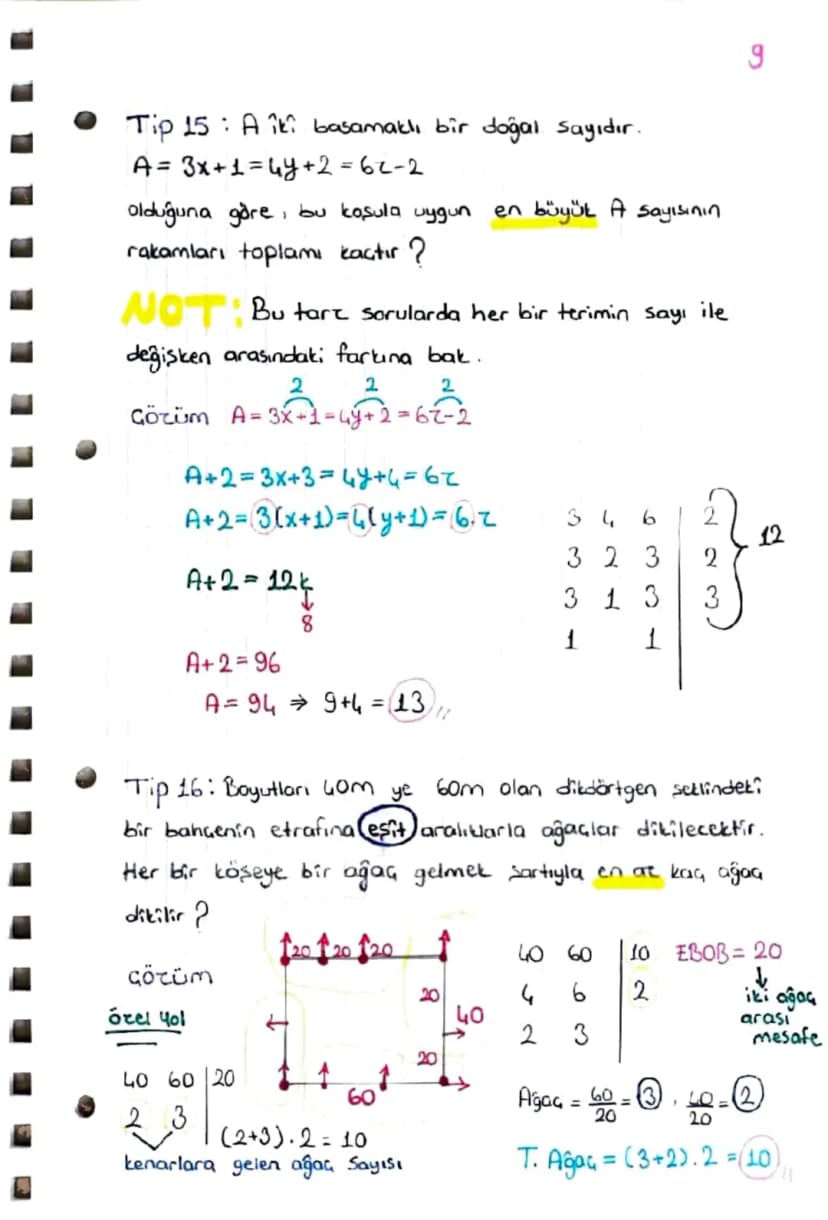 9
Tip 15 : A iki basamaklı bir doğal sayıdır.
A = 3x+1 = 4y+2 = 6z-2
olduğuna göre, bu koşula uygun en büyük A sayısının
rakamları toplamı kaçtır ?
NOT: Bu tarz sorularda her bir terimin sayı ile
değişken arasındaki farkına bak.
2 2 2
Çözüm A = 3x+1 = 4y+2 = 6z-2
A+2 = 3x+3 = 4y+4 = 6z
A+2 = 3(x+1) = 4(y+1) = 6.z
A+2 = 12k
8
A+2 = 96
A = 94 ⇒ 9+4 = 13
3 4 6 | 2
3 2 3 | 2
3 1 3 | 3
1 1
12
Tip 16 : Boyutları 40m ve 60m olan dikdörtgen şeklindeki
bir bahçenin etrafına eşit aralıklarla ağaçlar dikilecektir.
Her bir köşeye bir ağaç gelmek şartıyla en az kaç ağaç
dikilir ?
Çözüm
özel yol
40 60 | 20
2 3
(2+3).2 = 10
kenarlara gelen ağaç sayısı
20 20 20
20
40
20
60
40 60 | 10 EBOB = 20
4 6 | 2
2 3
iki ağaç
arası
mesafe
Ağaç = 60/20 = 3 , 40/20 = 2
T. Ağaç = (3+2).2 = 10